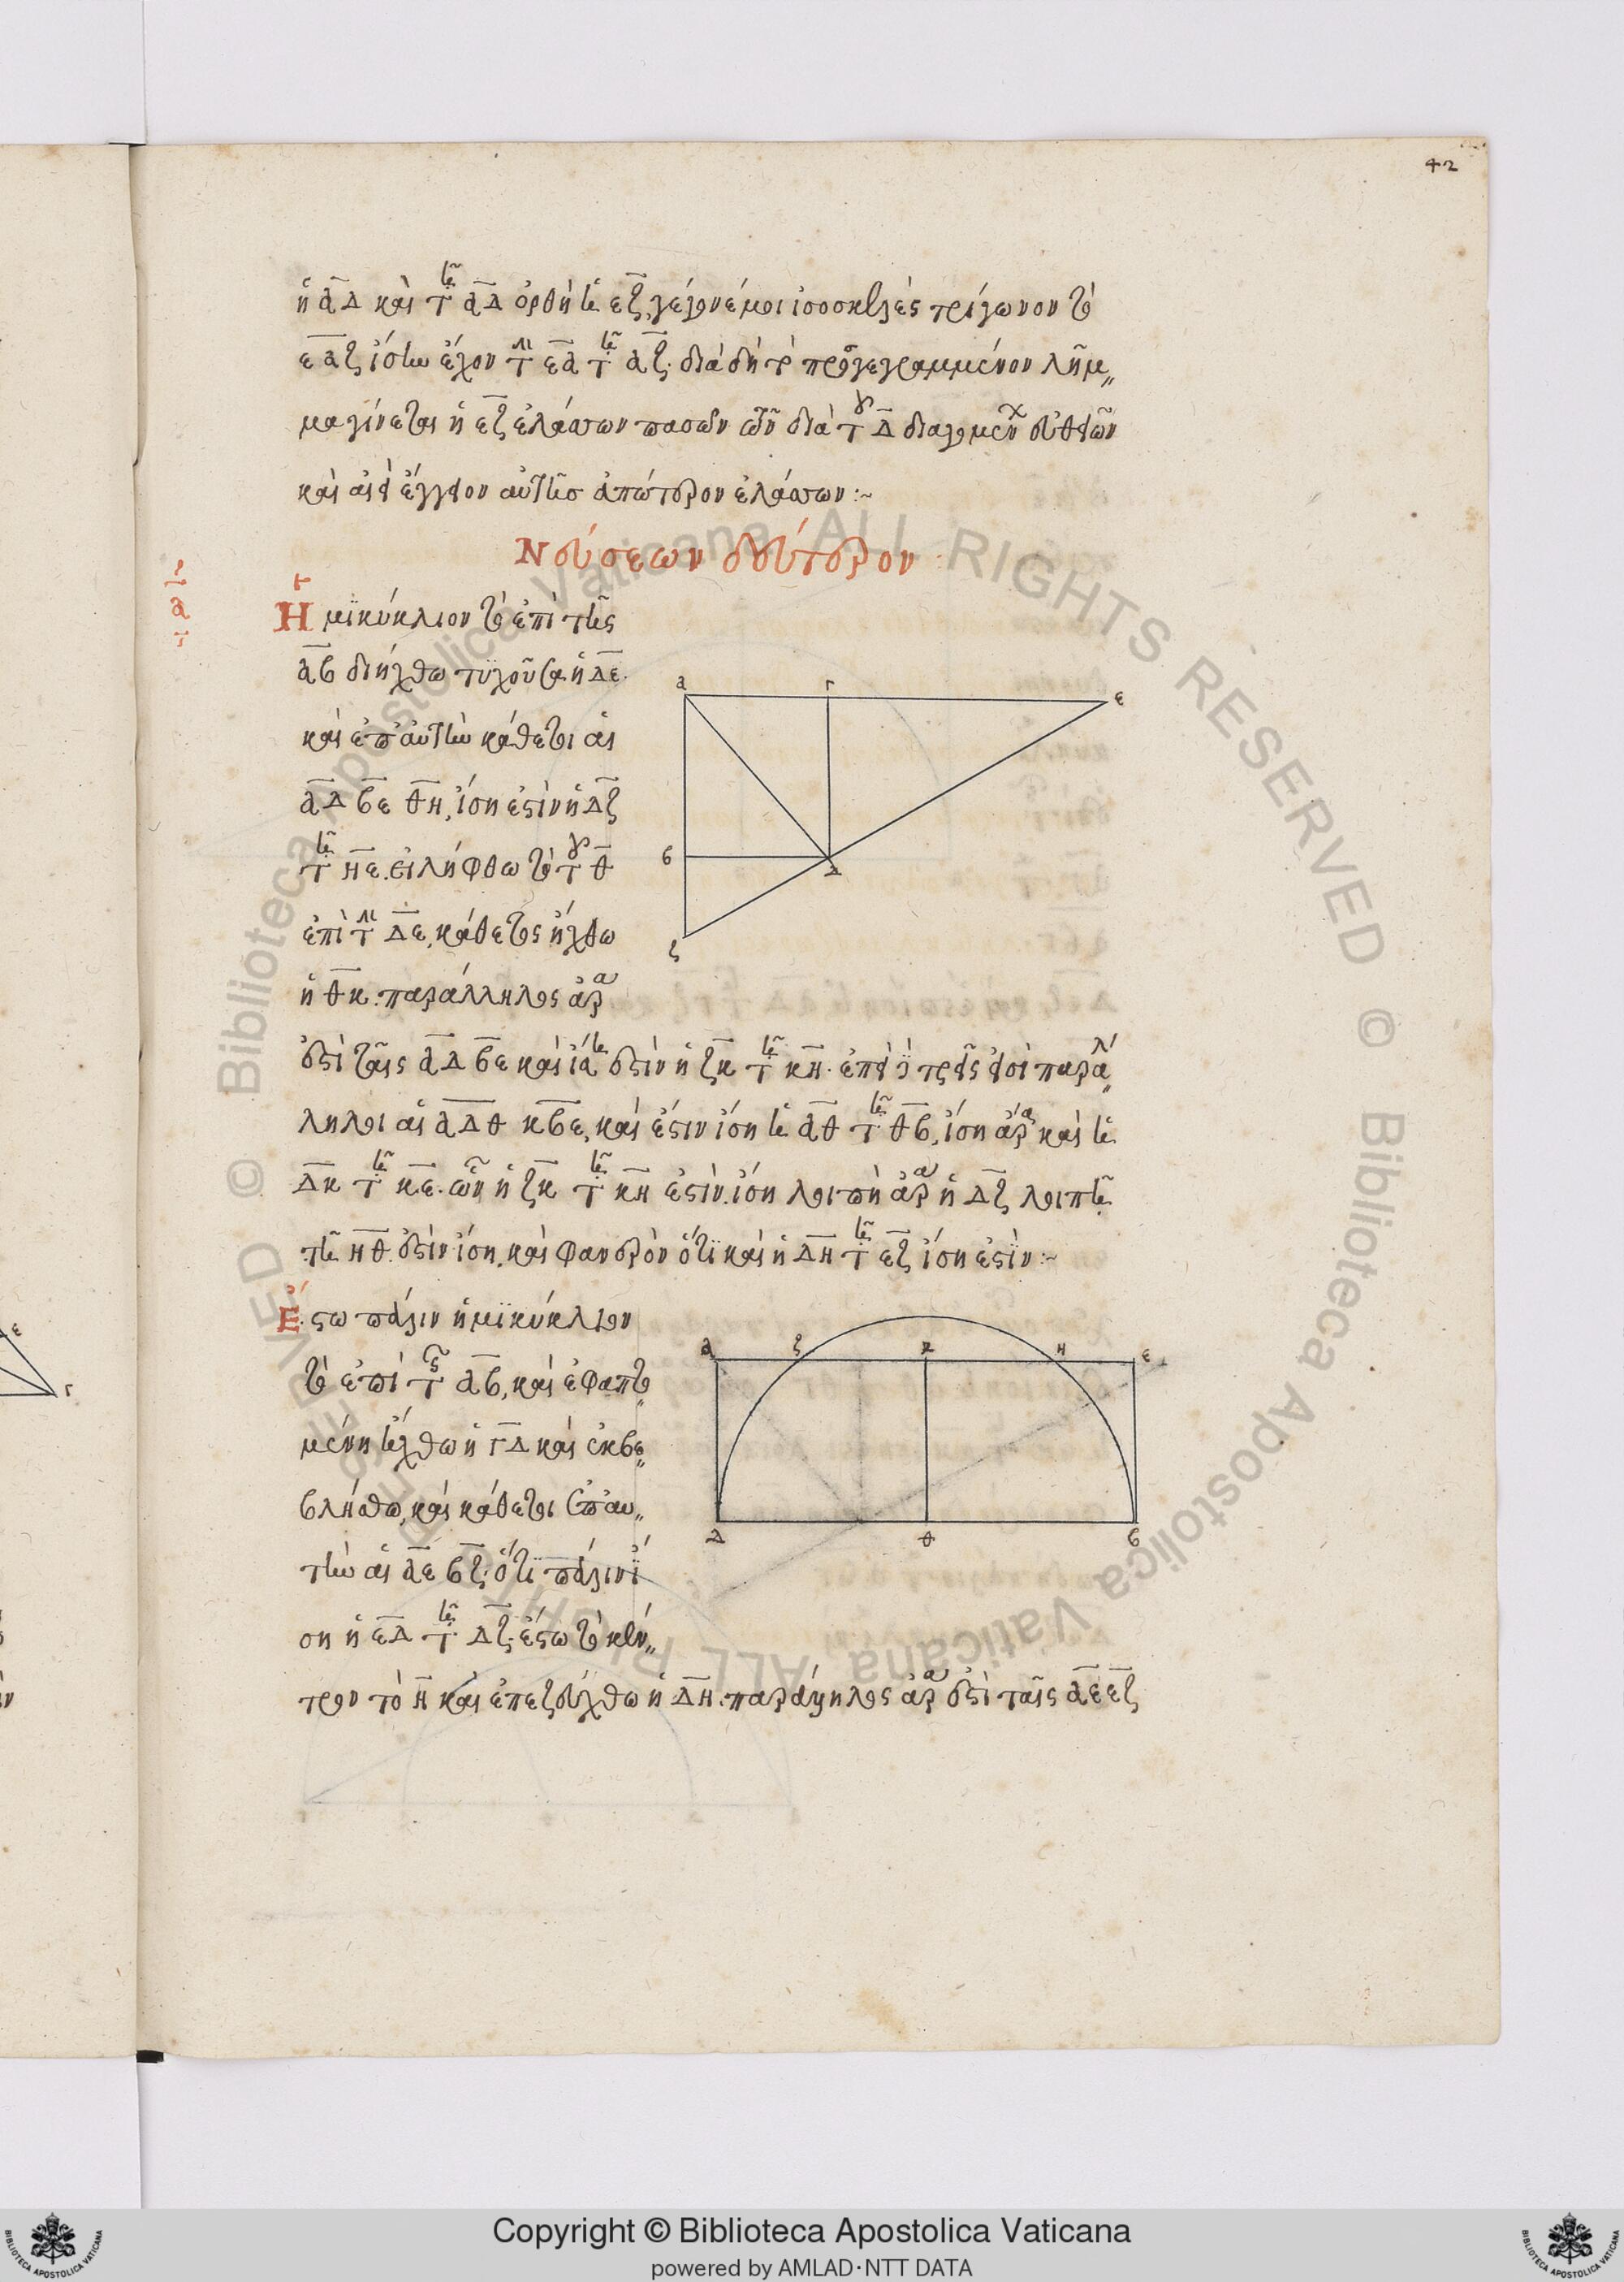 42
ἡ α̅δ̅ καὶ τῆ α̅δ̅ ὀρθὴ ἡ ε̅ζ̅, γέγονέ μοι ἰσοσκελὲς τρίγωνον τὸ
ε̅α̅ζ̅ ἴσην ἔχον τὴν ε̅α̅ τῆ α̅ζ̅. διὰ δὴ τὸ προγεγραμμένον λῆμ
μα γίνεται ἡ ε̅ζ̅ ἐλάσσων πασῶν τῶν διὰ τοῦ δ̅ διαγομένων εὐθειῶν
καὶ αἰεὶ ἔγγιον αὐτῆσ ἀπώτερον ἐλάσσων :~
Νεύσεων δεύτερον
Ημϊκύκλιον τὸ ἐπὶ τῆς
α̅β̅ διήχθω τυχοῦσα ἡ δ̅ε̅.
καὶ ἐπ' αὐτὴν κάθετοι αἱ
α̅δ̅ β̅ε̅ θ̅η̅, ἴση ἐστὶν ἡ δ̅ζ̅
τῆ η̅ε̅. εἰλήφθω τὸ θ̅
ἐπὶ τὴν δ̅ε̅, κάθετος ἤχθω
ἡ θ̅κ̅. παράλληλος ἄρα
ἐστὶ ταῖς α̅δ̅ β̅ε̅ καὶ ἴση ἐστὶν ἡ ζ̅κ̅ τῆ κ̅η̅. ἐπεὶ τρεῖς εἰσὶ παρά
λληλοι αἱ α̅δ̅ θ̅κ̅ β̅ε̅, καὶ ἔστιν ἴση ἡ α̅θ̅ τῆ θ̅β̅, ἴση ἄρα καὶ ἡ
δ̅κ̅ τῆ κ̅ε̅. ὧν ἡ ζ̅κ̅ τῆ κ̅η̅ ἐστὶν ἴση λοιπὴ ἄρα ἡ δ̅ζ̅ λοιπῆ
τῆ η̅θ̅ ἐστὶν ἴση. καὶ φανερὸν ὅτι καὶ ἡ δ̅η̅ τῆ ε̅ζ̅ ἴση ἐστὶν :~
Εστω πάλιν ἡμϊκύκλιον
τὸ ἐπὶ τῆς α̅β̅, καὶ ἐφαπτο
μένη ἤχθω ἡ γ̅δ̅ καὶ ἐκβε
βλήσθω, καὶ κάθετοι ἐπ' αυ
τὴν αἱ α̅ε̅ β̅ζ̅. ὅτι πάλιν ἴ
ση ἡ ε̅δ̅ τῆ δ̅ζ̅. ἔστω τὸ κέν
τρον τὸ η̅ καὶ ἐπεζεύχθω ἡ δ̅η̅. παράλληλος ἄρα ἐστὶ ταῖς α̅ε̅ ε̅ζ̅
α γ ε
β δ
ζ
α ζ κ η ε
δ θ β
ε
γ
© Biblioteca Apostolica Vaticana ALL RIGHTS RESERVED © Biblioteca Apostolica Vaticana ALL RIGHTS RESERVED
Copyright © Biblioteca Apostolica Vaticana
powered by AMLAD·NTT DATA
BIBLIOTECA APOSTOLICA VATICANA
BIBLIOTECA APOSTOLICA VATICANA